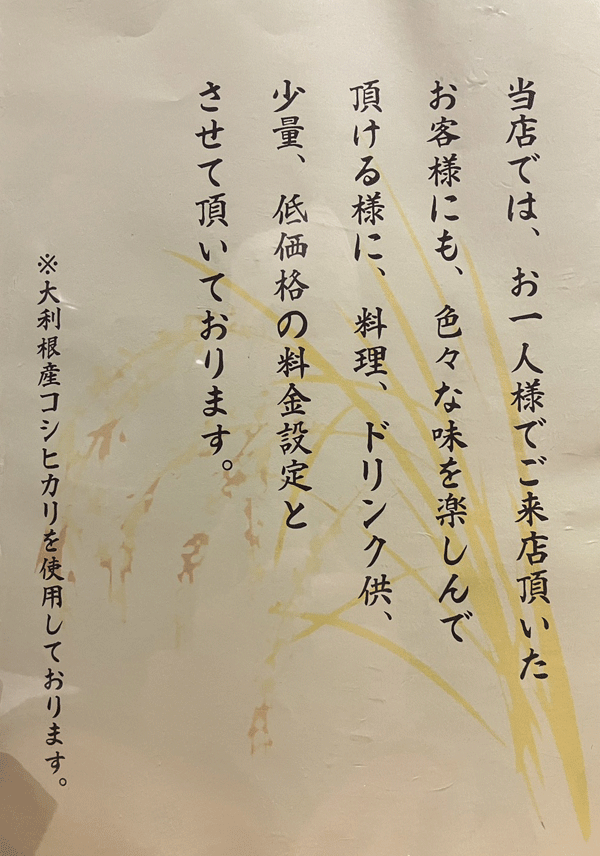 当店では、お一人様でご来店頂いた
お客様にも、色々な味を楽しんで
頂ける様に、料理、ドリンク供、
少量、低価格の料金設定と
させて頂いております。
※大利根産コシヒカリを使用しております。